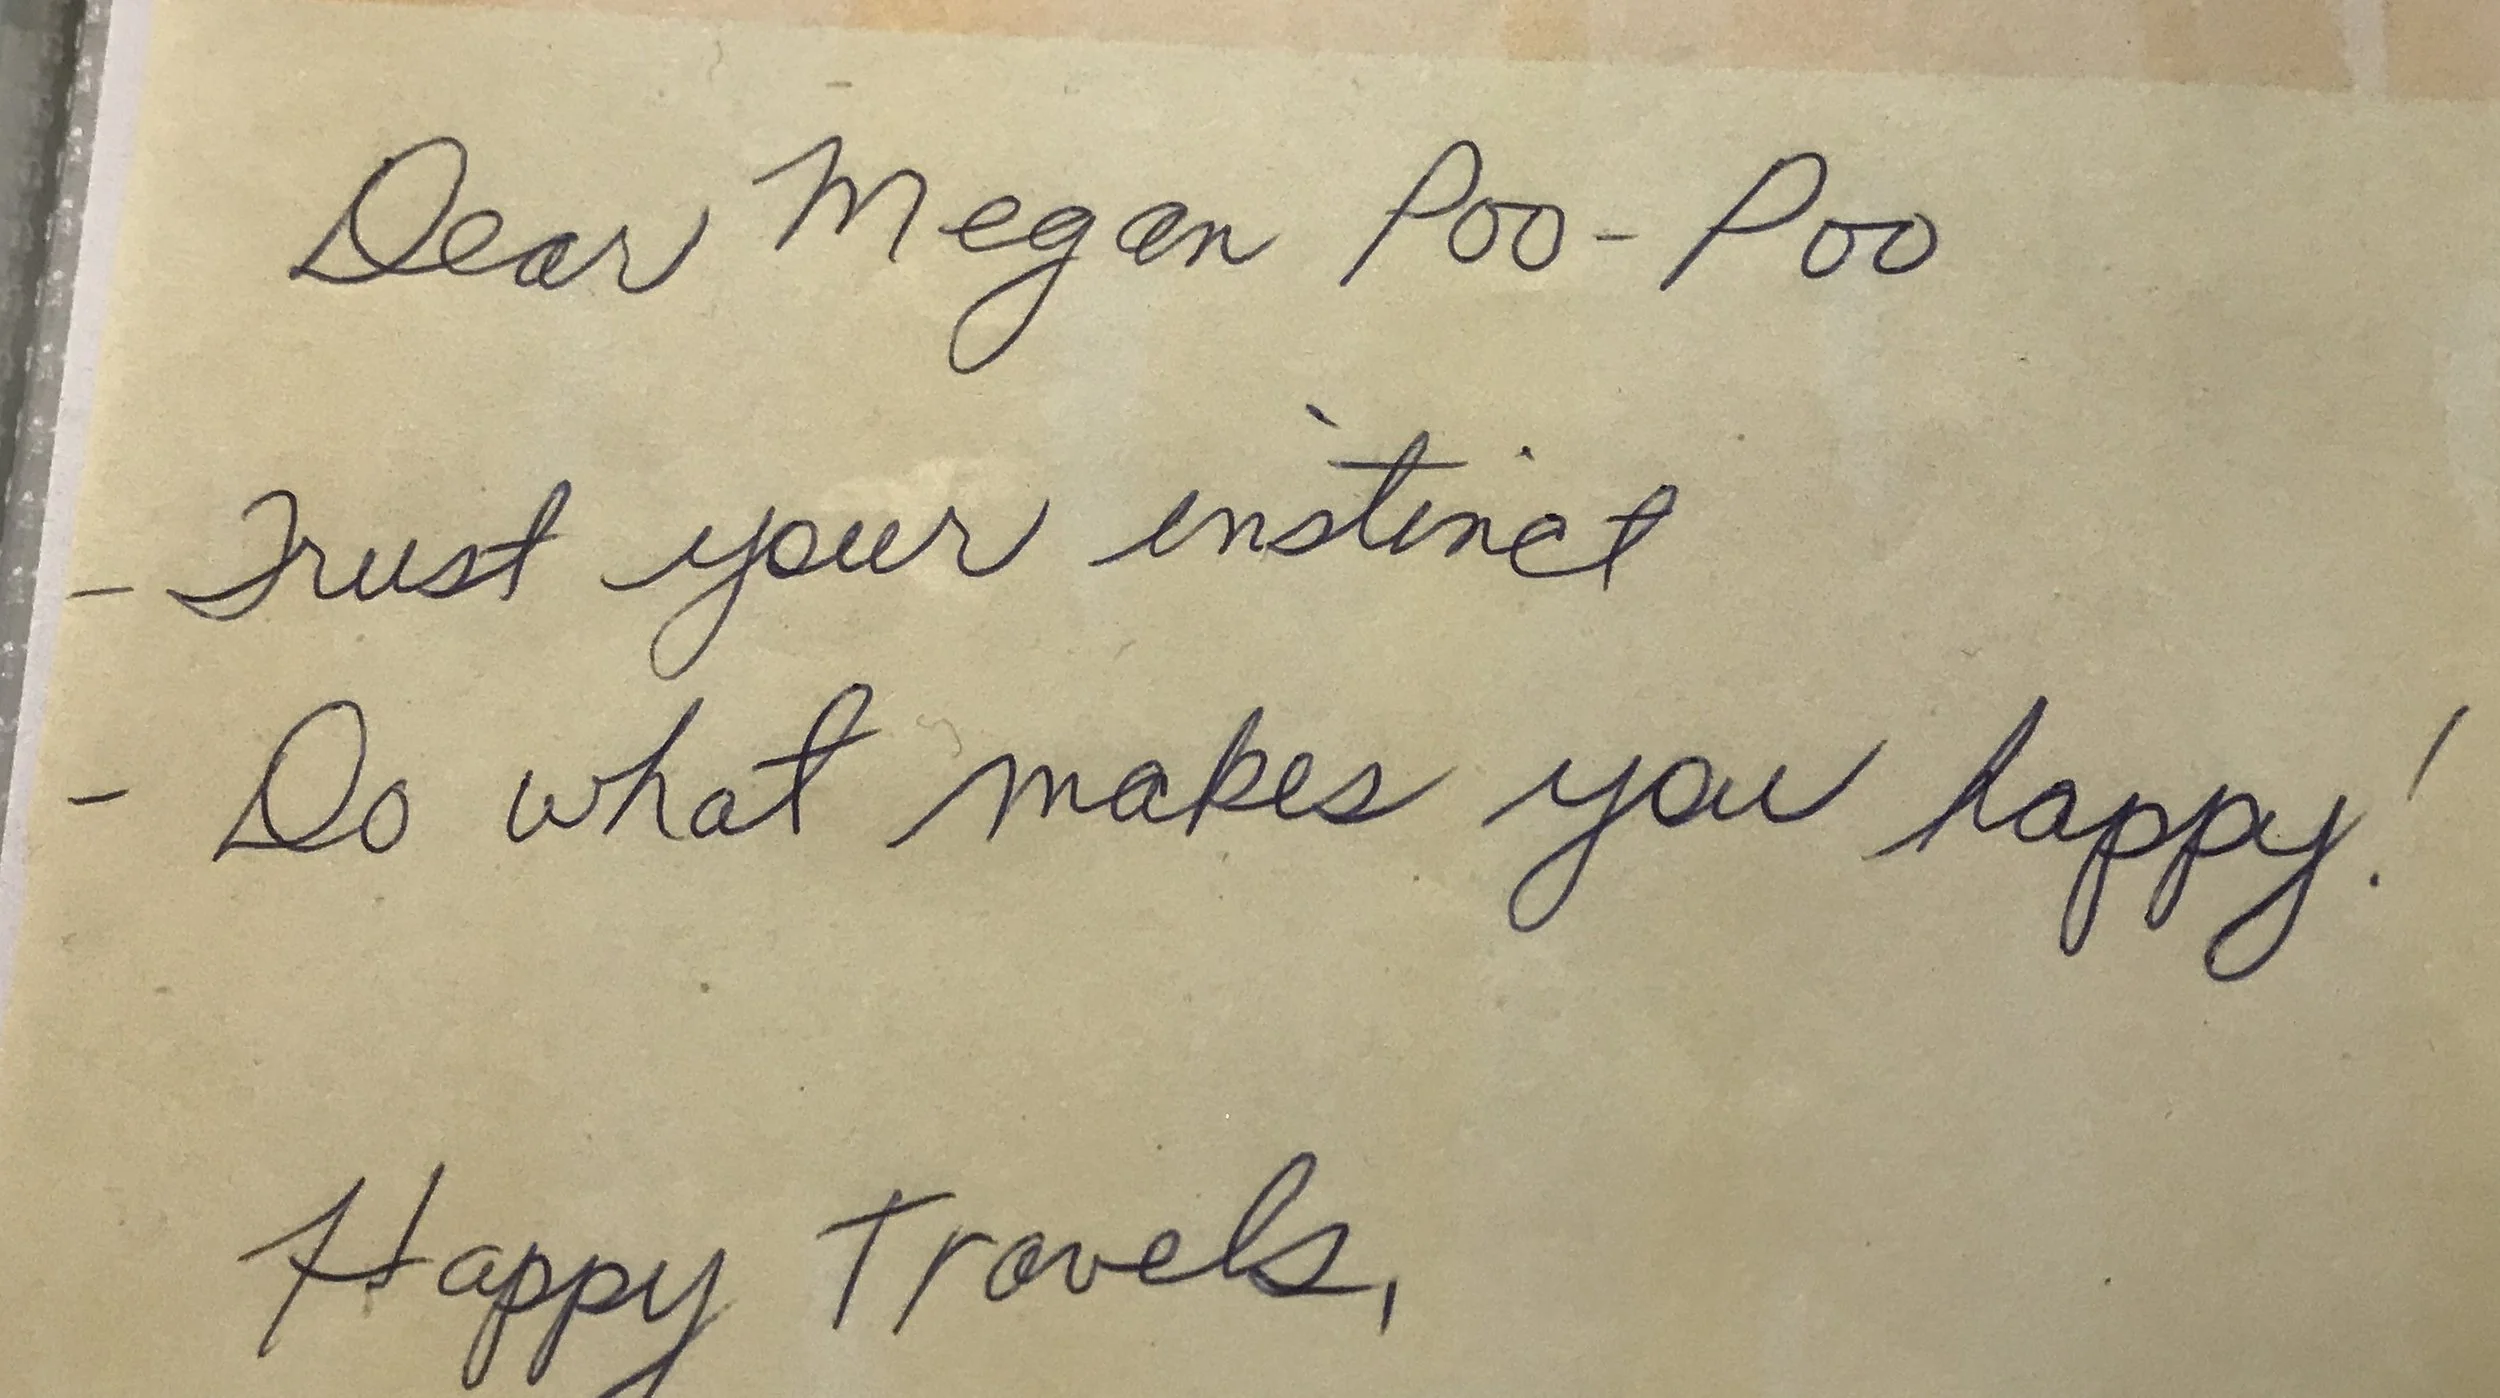 Dear Megan Poo-Poo
- Trust your instinct
- Do what makes you happy!
Happy Travels,